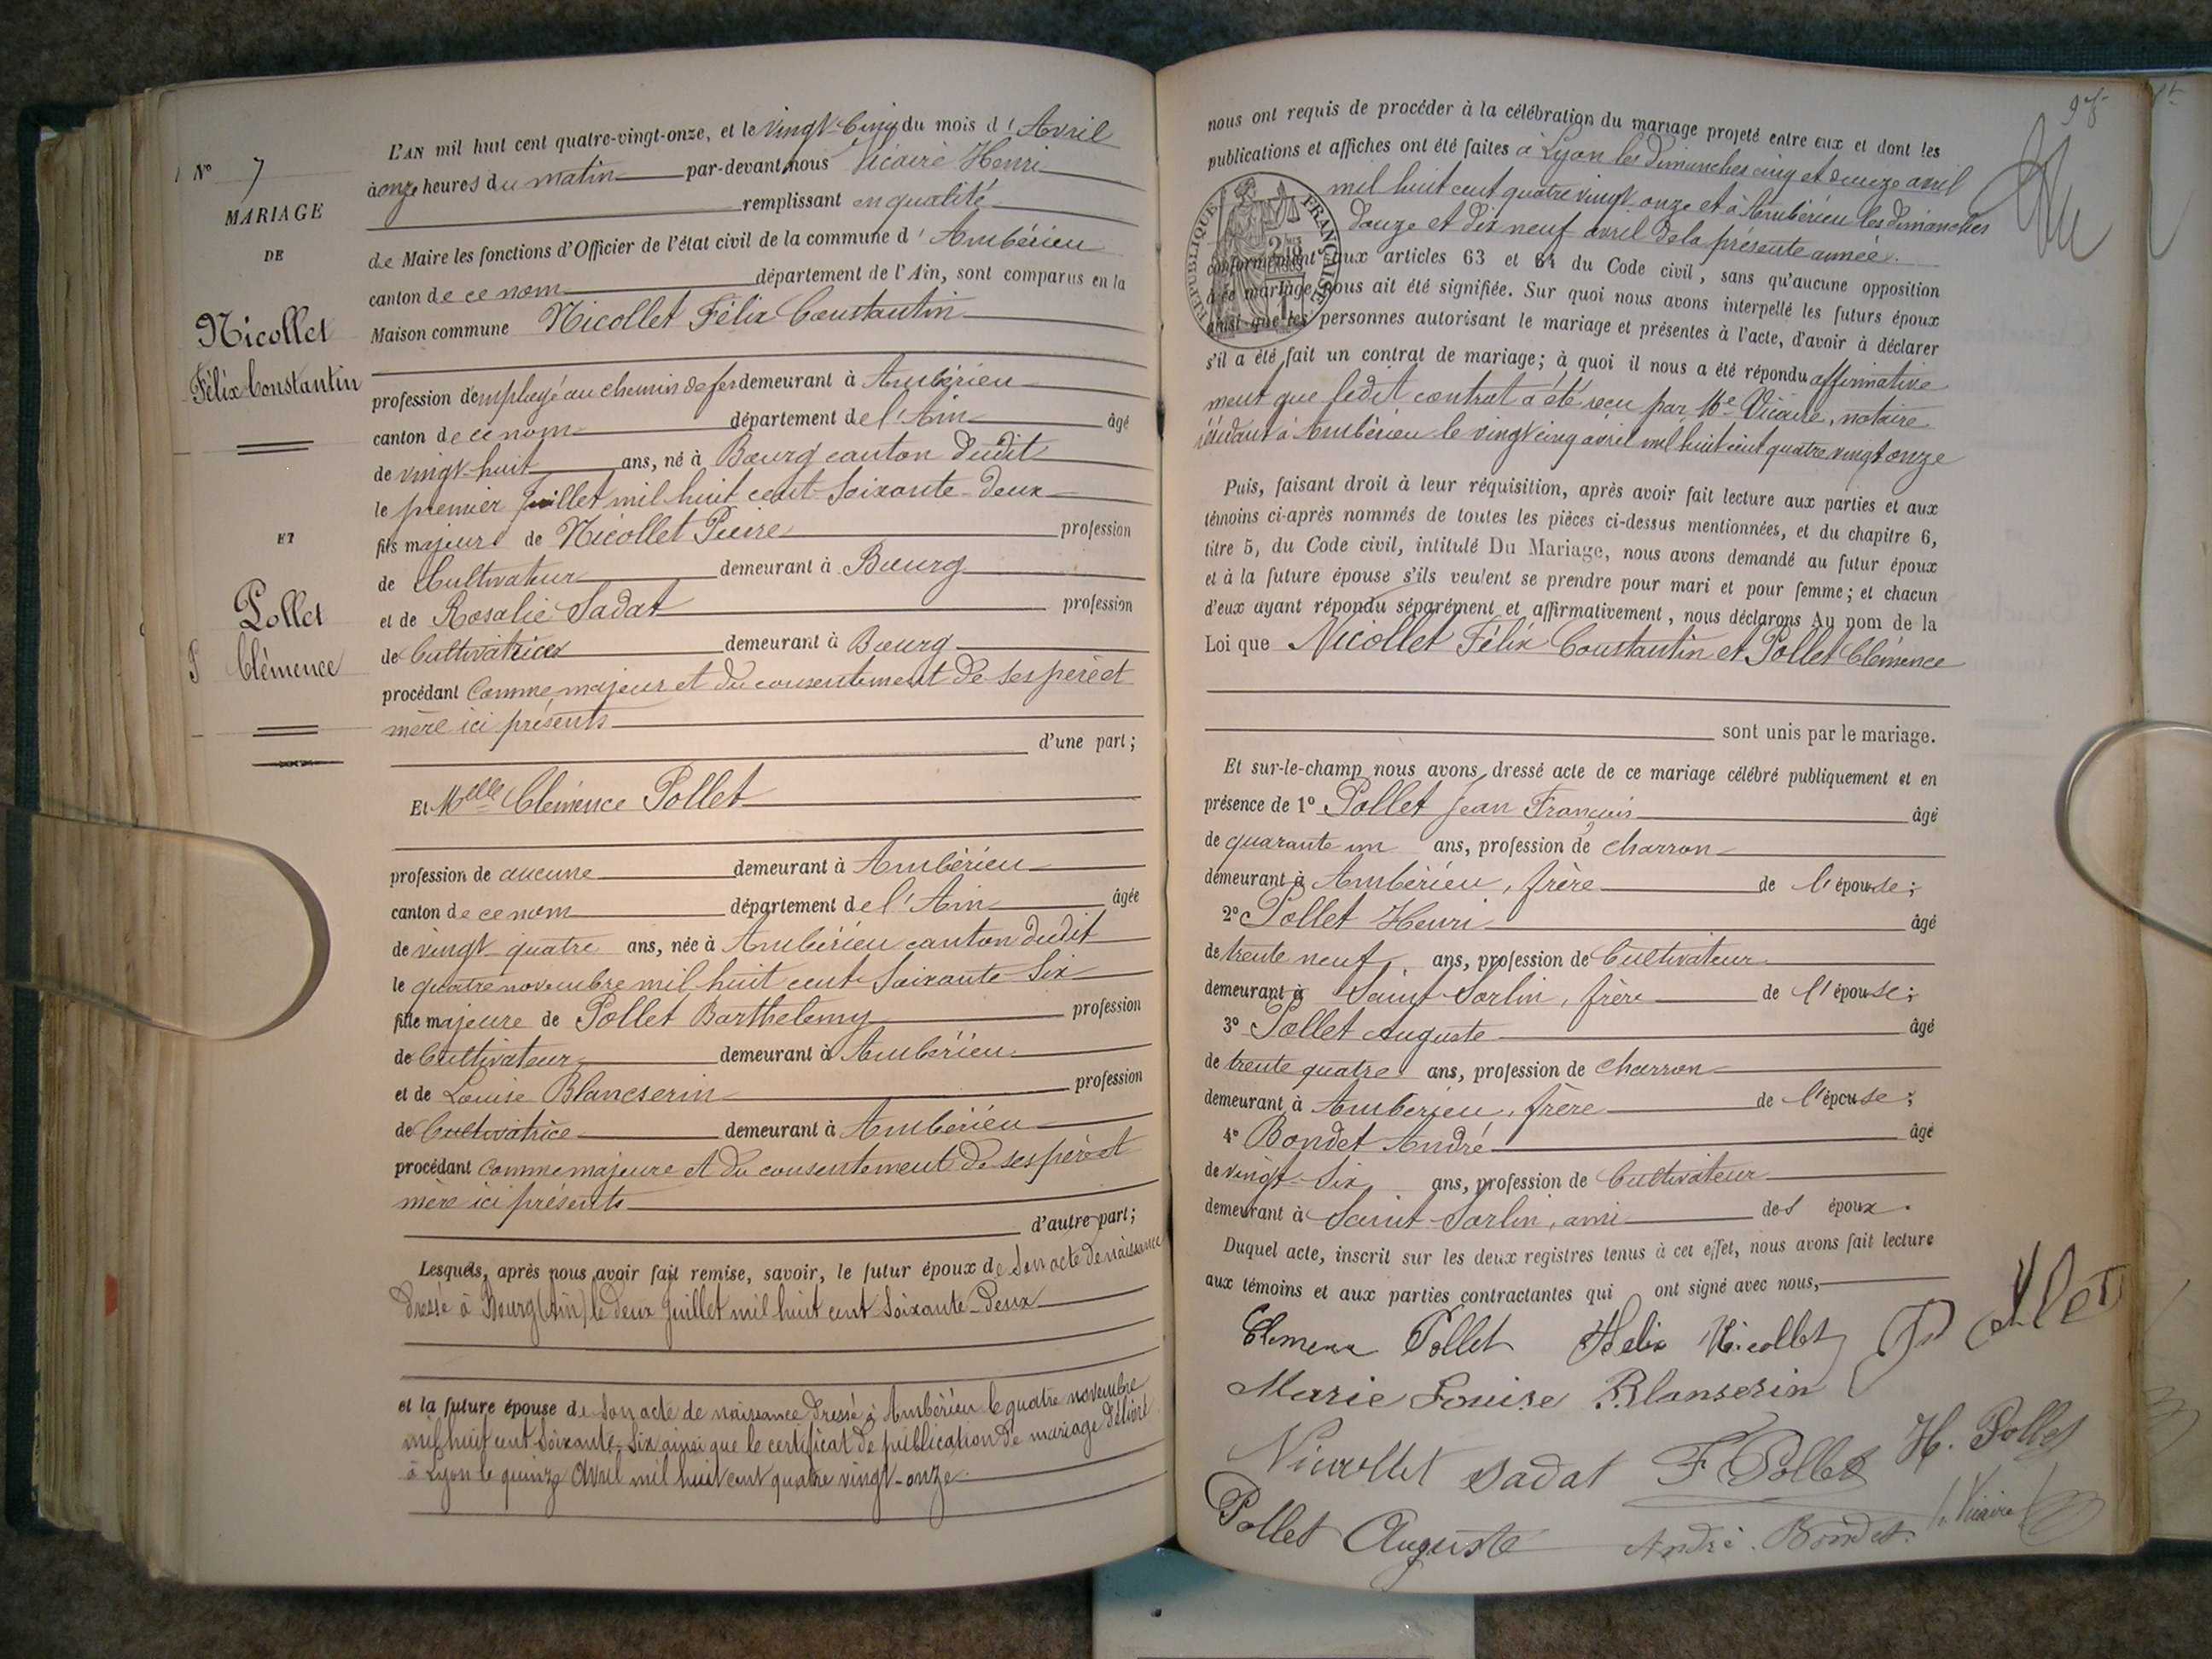 N° 7
MARIAGE
DE
Nicollet
Félix Constantin
ET
Pollet
Clémence
L'AN mil huit cent quatre-vingt-onze, et le vingt-cinq du mois d'Avril
à onze heures du matin par-devant nous Vicaire Henri
remplissant en qualité
de Maire les fonctions d'Officier de l'état civil de la commune d'Ambérieu
canton de ce nom département de l'Ain, sont comparus en la
Maison commune Nicollet Félix Constantin
profession d'employé au chemin de fer demeurant à Ambérieu
canton de ce nom département de l'Ain âgé
de vingt-huit ans, né à Bourg canton dudit
le premier Juillet mil huit cent soixante-deux
fils majeur de Nicollet Pierre profession
de Cultivateur demeurant à Bourg
et de Rosalie Sadat profession
de Cultivatrice demeurant à Bourg
procédant comme majeur et du consentement de ses père et
mère ici présents
d'une part;
Et Melle Clémence Pollet
profession de aucune demeurant à Ambérieu
canton de ce nom département de l'Ain âgée
de vingt-quatre ans, née à Ambérieu canton dudit
le quatre novembre mil huit cent soixante-six
fille majeure de Pollet Barthelemy profession
de Cultivateur demeurant à Ambérieu
et de Louise Blancserin profession
de Cultivatrice demeurant à Ambérieu
procédant comme majeure et du consentement de ses père et
mère ici présents
d'autre part;
Lesquels, après nous avoir fait remise, savoir, le futur époux de son acte de naissance
dressé à Bourg (Ain) le deux Juillet mil huit cent soixante-deux
et la future épouse de son acte de naissance dressé à Ambérieu le quatre novembre
mil huit cent soixante-six ainsi que le certificat de publication de mariage délivré
à Lyon le quinze avril mil huit cent quatre vingt-onze
nous ont requis de procéder à la célébration du mariage projeté entre eux et dont les
publications et affiches ont été faites à Lyon les dimanches cinq et douze avril
mil huit cent quatre vingt onze et à Ambérieu les dimanches
douze et dix neuf avril de la présente année.
RÉPUBLIQUE FRANÇAISE
conformément aux articles 63 et 64 du Code civil, sans qu'aucune opposition
à ce mariage nous ait été signifiée. Sur quoi nous avons interpellé les futurs époux
ainsi que les personnes autorisant le mariage et présentes à l'acte, d'avoir à déclarer
s'il a été fait un contrat de mariage; à quoi il nous a été répondu affirmative
ment que ledit contrat a été reçu par Me Vicaire, notaire
résidant à Ambérieu le vingt cinq avril mil huit cent quatre vingt onze
Puis, faisant droit à leur réquisition, après avoir fait lecture aux parties et aux
témoins ci-après nommés de toutes les pièces ci-dessus mentionnées, et du chapitre 6,
titre 5, du Code civil, intitulé Du Mariage, nous avons demandé au futur époux
et à la future épouse s'ils veulent se prendre pour mari et pour femme; et chacun
d'eux ayant répondu séparément et affirmativement, nous déclarons Au nom de la
Loi que Nicollet Félix Constantin et Pollet Clémence
sont unis par le mariage.
Et sur-le-champ nous avons dressé acte de ce mariage célébré publiquement et en
présence de 1° Pollet Jean François âgé
de quarante un ans, profession de charron
demeurant à Ambérieu, frère de l'épouse;
2° Pollet Henri âgé
de trente neuf ans, profession de Cultivateur
demeurant à Saint-Sorlin, frère de l'épouse;
3° Pollet Auguste âgé
de trente quatre ans, profession de charron
demeurant à Ambérieu, frère de l'épouse;
4° Bondet André âgé
de vingt-six ans, profession de Cultivateur
demeurant à Saint-Sorlin, ami des époux.
Duquel acte, inscrit sur les deux registres tenus à cet effet, nous avons fait lecture
aux témoins et aux parties contractantes qui ont signé avec nous,
Clemence Pollet Félix Nicollet Pollet
Marie Louise Blanserin
Nicollet Sadat F Pollet H. Pollet
Pollet Auguste André Bondet H. Vicaire